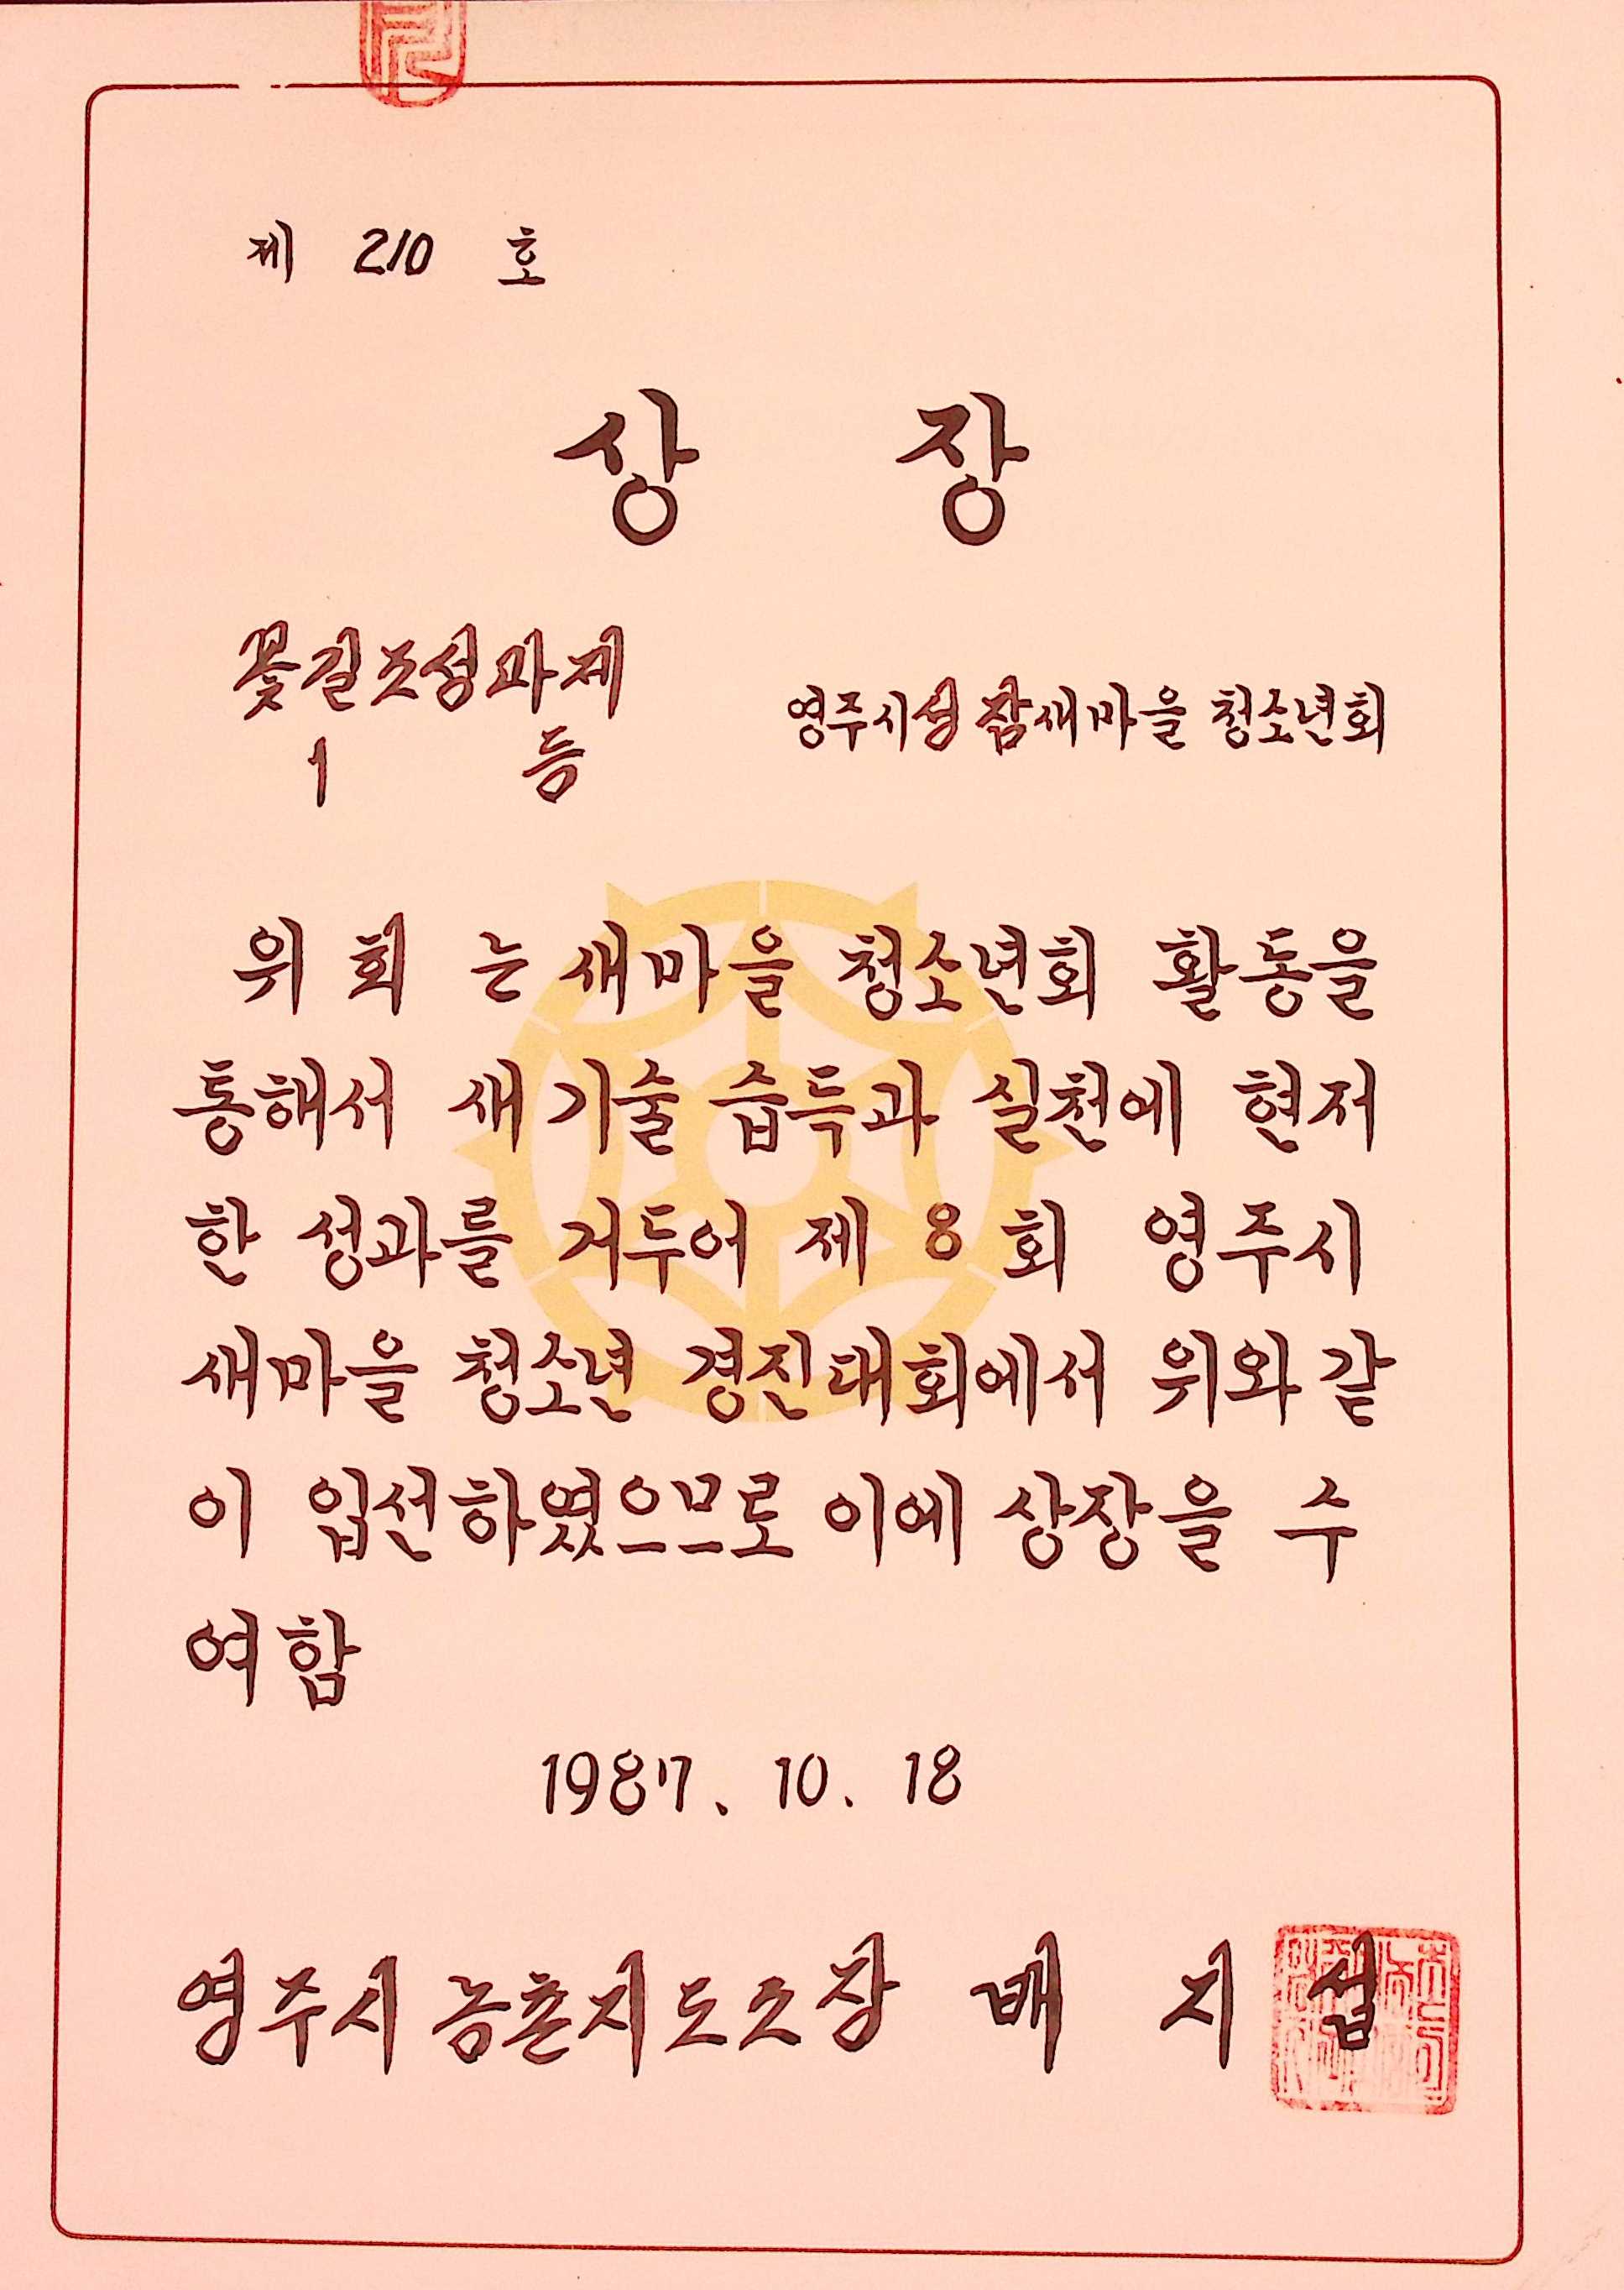 제 210 호
상 장
꽃길조성과제
1 등
영주시성잠새마을 청소년회
위 회 는 새마을 청소년회 활동을
통해서 새기술 습득과 실천에 현저
한 성과를 거두어 제 8 회 영주시
새마을 청소년 경진대회에서 위와 같
이 입선하였으므로 이에 상장을 수
여함
1987. 10. 18
영주시 농촌지도소장 배 지 섭